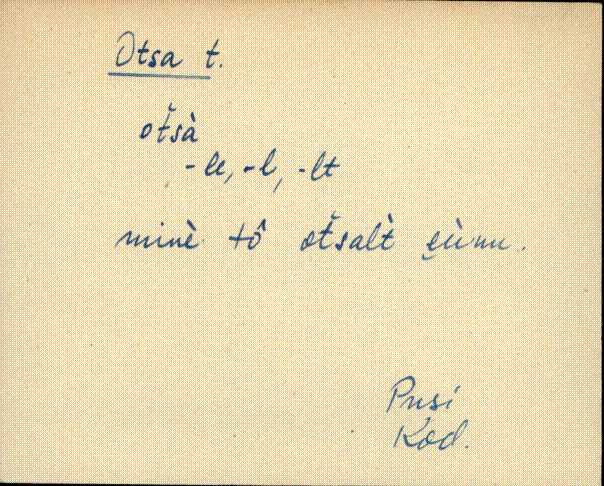 Otsa t.
oťsà
-le, -l, -lt
minè tô oťsalt̀
Pusi
Kod.